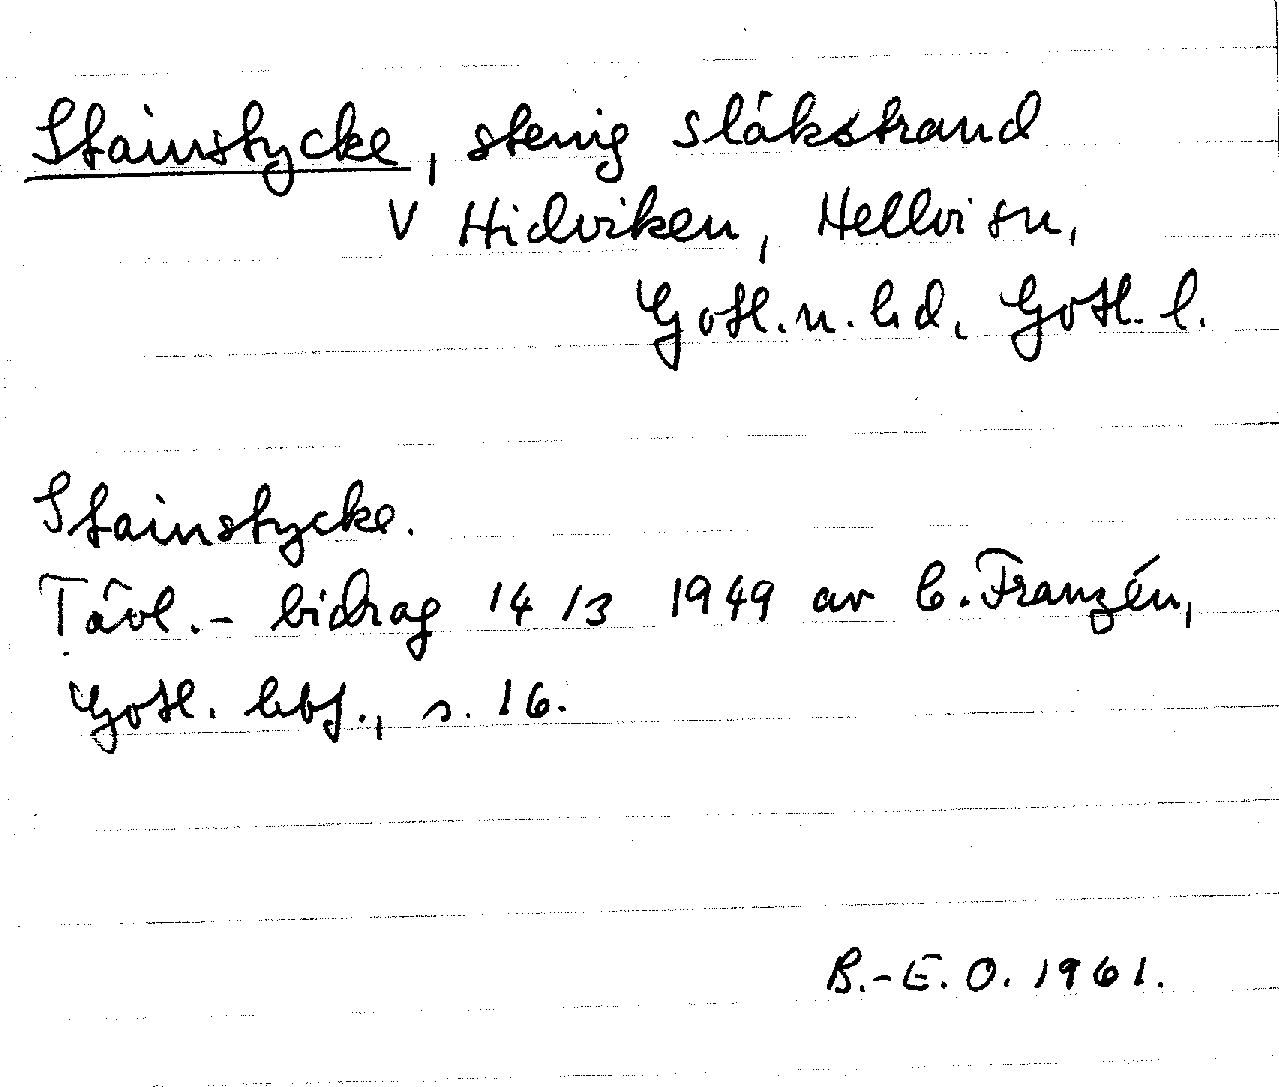 Stainstycke, stenig släkstrand
V Hidviken, Hellvi sn,
Gotl. n. hd, Gotl. l.
Stainstycke.
Tävl.- bidrag 14/3 1949 av C. Franzén,
Gotl. hbf., s. 16.
B.-E. O. 1961.